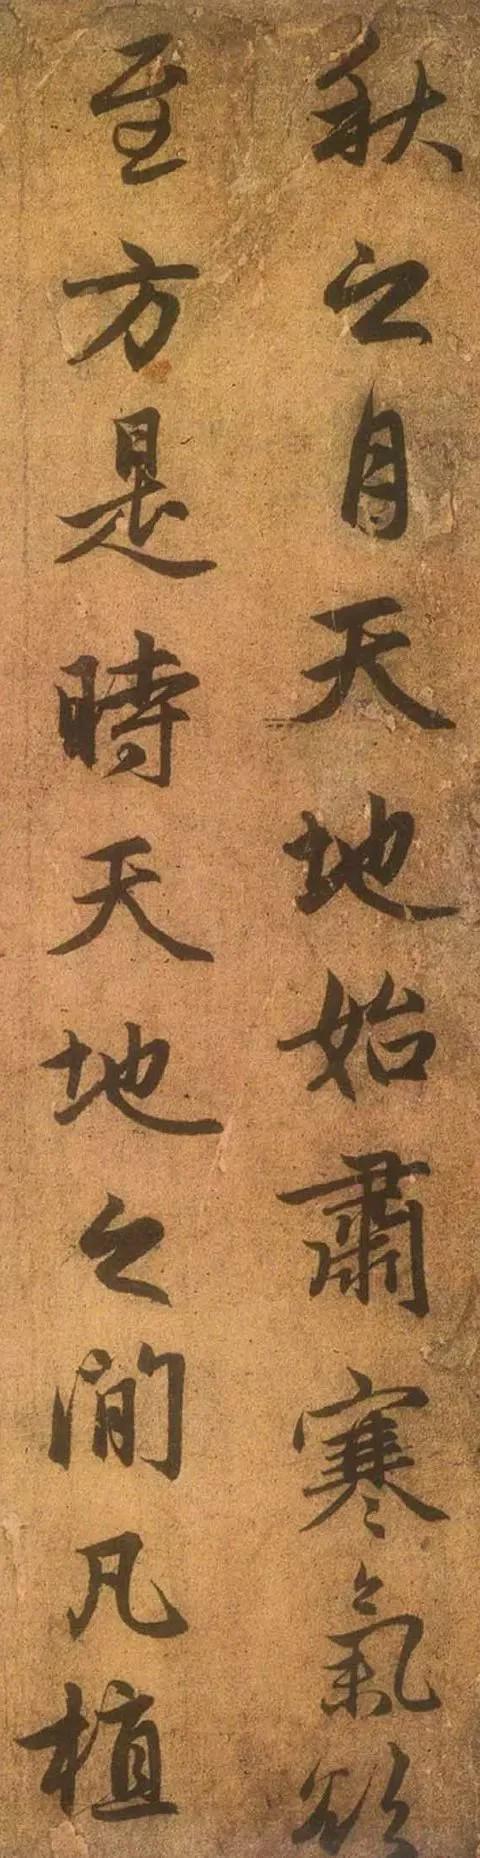 秋之月天地始肅寒氣欲
至方是時天地之間凡植